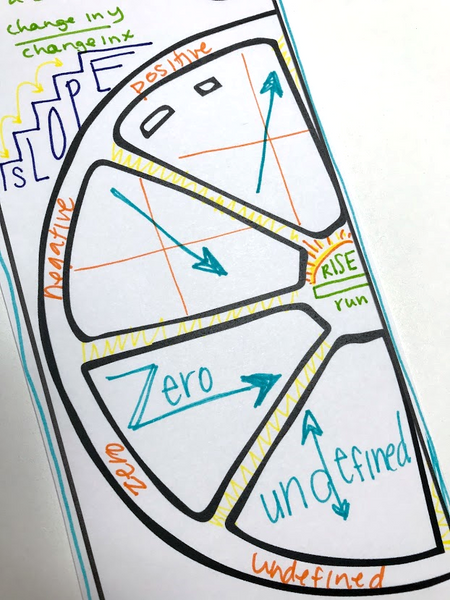 change in y
change in x
SLOPE
positive
Negative
RISE
run
Zero
zero
undefined
undefined